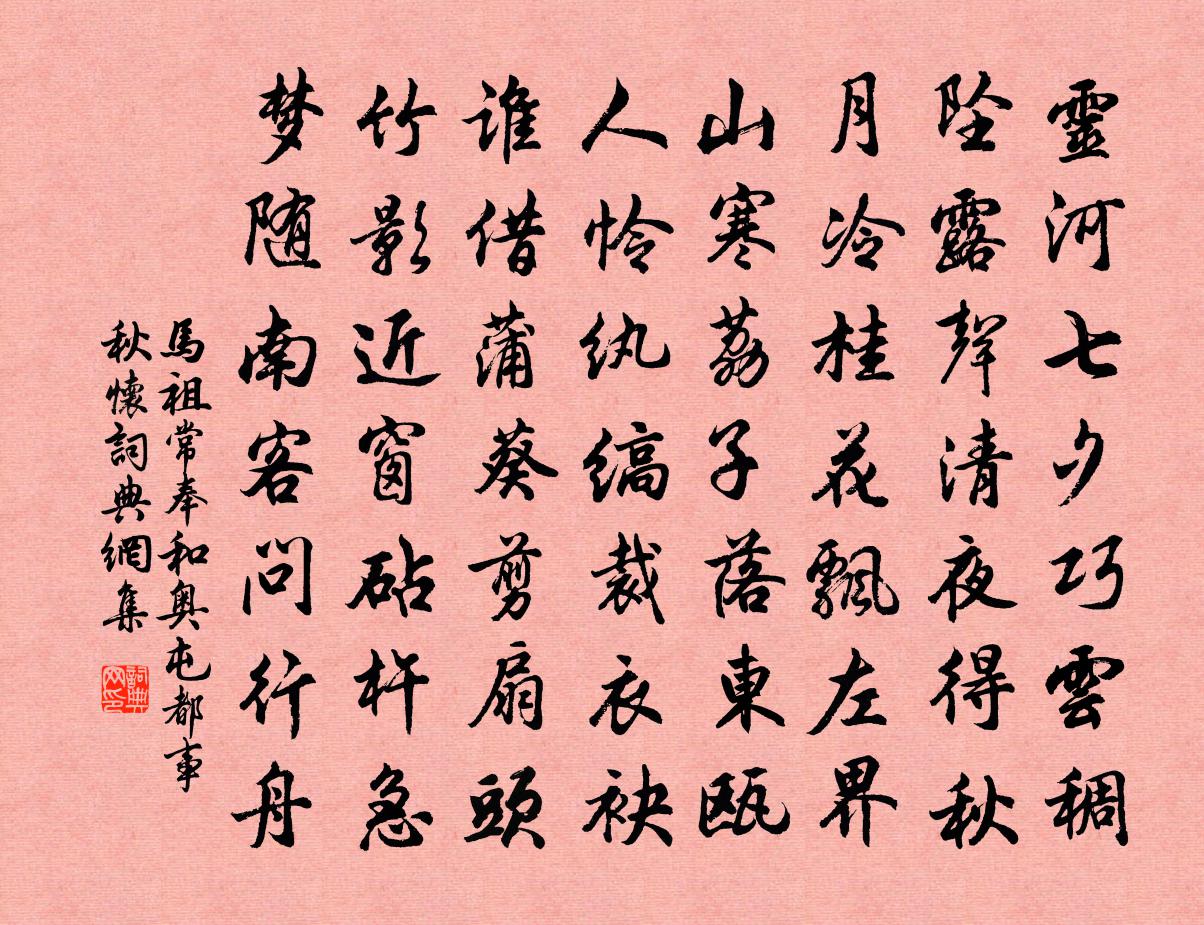 靈河七夕巧雲稠
坠露聲清夜得秋
月冷桂花飄左界
山寒荔子落東瓯
人怜纨缟裁衣袂
谁借蒲葵剪扇頭
竹影近窗砧杵急
梦随南客问行舟
馬祖常奉和奥屯都事
秋懷詞典網集
詞典网印